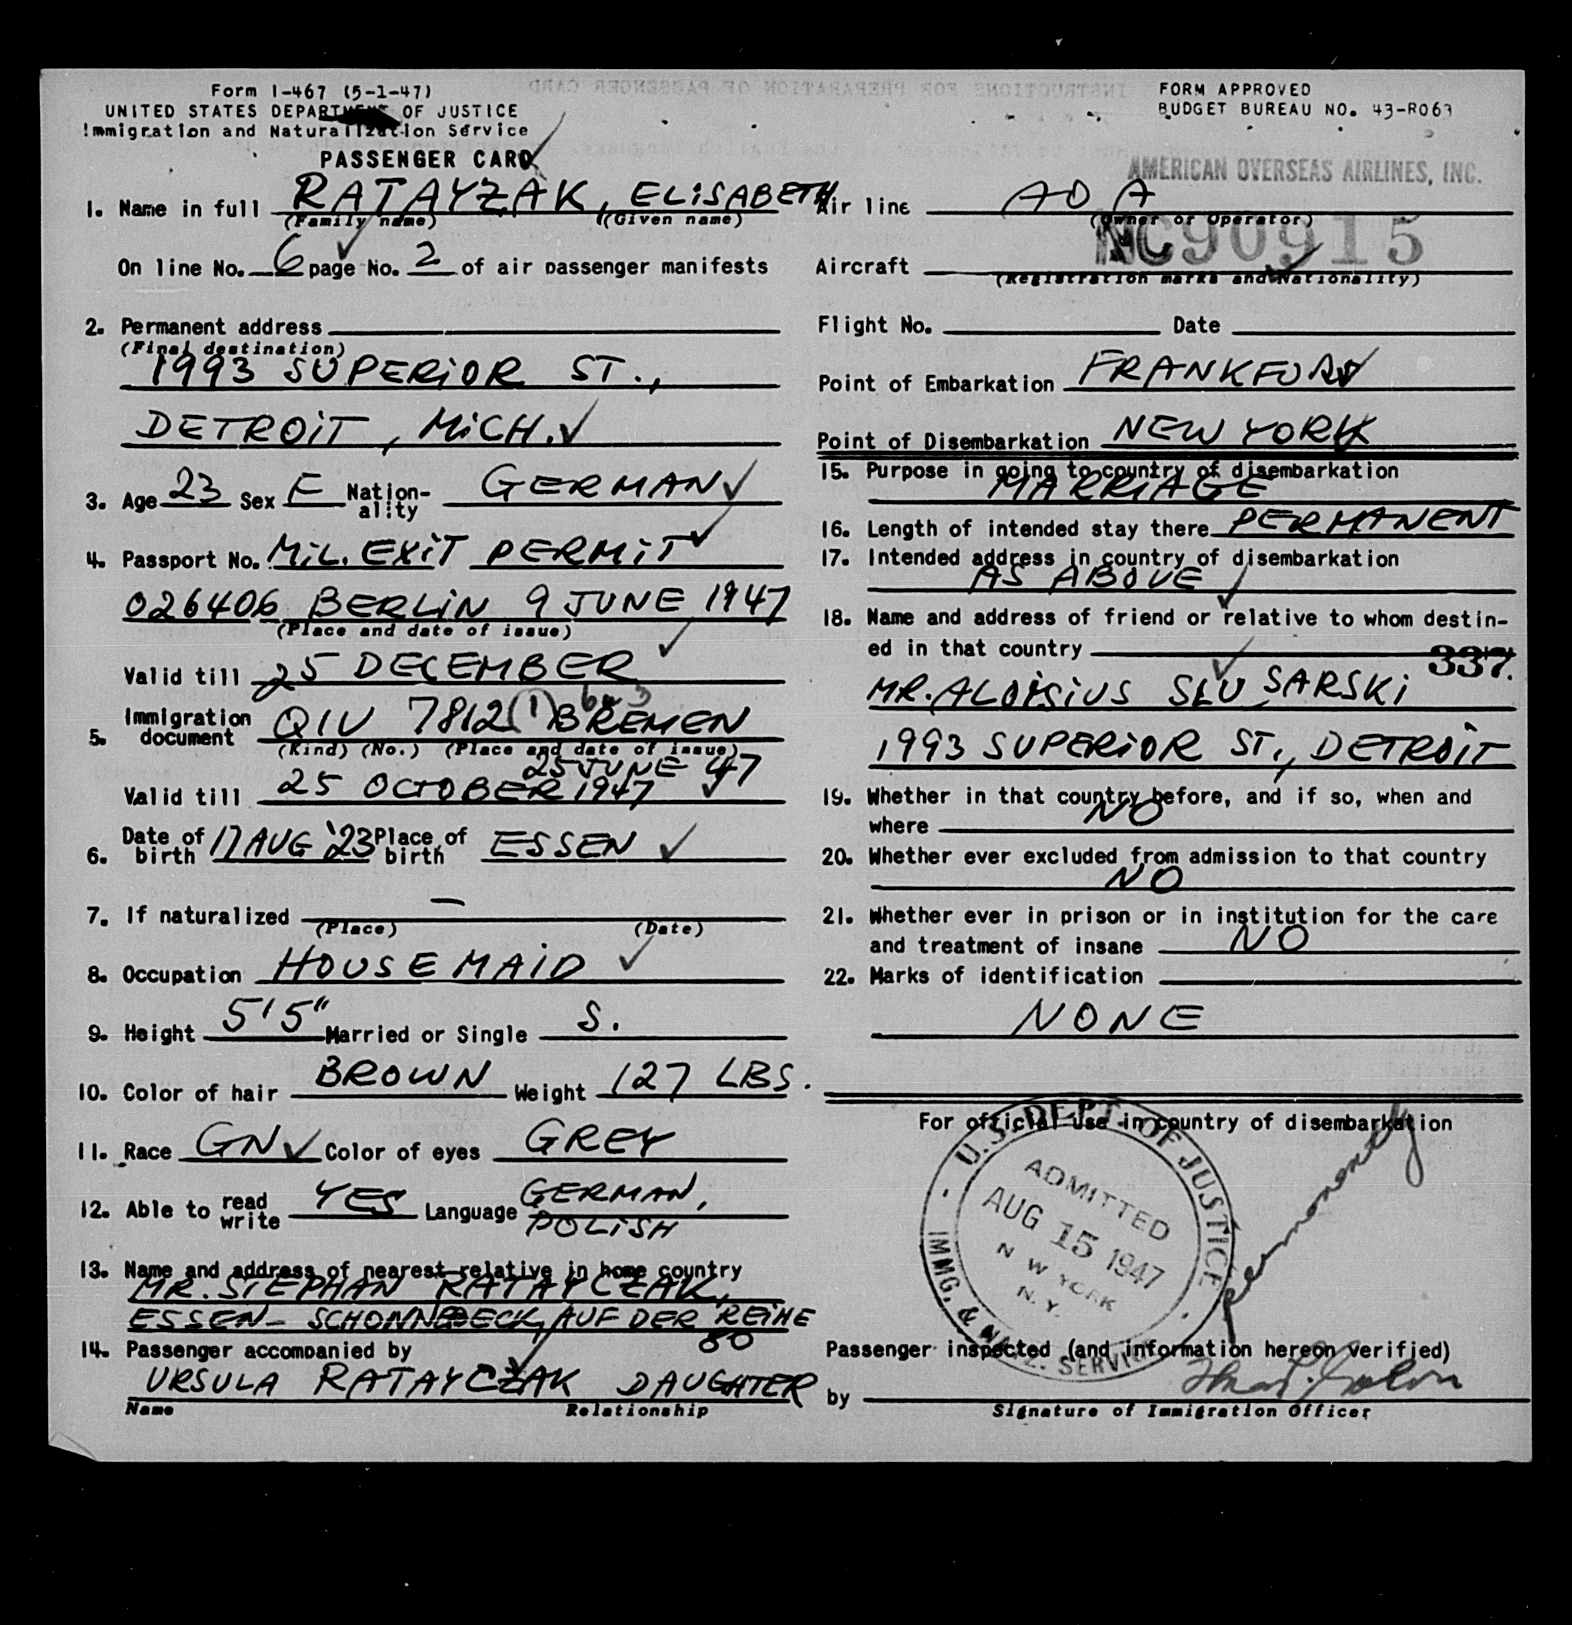 Form I-467 (5-1-47)
UNITED STATES DEPARTMENT OF JUSTICE
Immigration and Naturalization Service
PASSENGER CARD
FORM APPROVED
BUDGET BUREAU NO. 43-R063
AMERICAN OVERSEAS AIRLINES, INC.
1. Name in full RATAYZAK, ELISABETH
(Family name) (Given name)
On line No. 6 page No. 2 of air passenger manifests
2. Permanent address
(Final destination)
1993 SUPERIOR ST.,
DETROIT, MICH.
3. Age 23 Sex F Nation-ality GERMAN
4. Passport No. MIL. EXIT PERMIT
026406 BERLIN 9 JUNE 1947
(Place and date of issue)
Valid till 25 DECEMBER
5. Immigration document QIV 7812 (1) BREMEN
(Kind) (No.) (Place and date of issue)
25 JUNE 47
Valid till 25 OCTOBER 1947
6. Date of birth 17 AUG '23 Place of birth ESSEN
7. If naturalized —
(Place) (Date)
8. Occupation HOUSEMAID
9. Height 5'5" Married or Single S.
10. Color of hair BROWN Weight 127 LBS.
11. Race GN Color of eyes GREY
12. Able to read write YES Language GERMAN,
POLISH
13. Name and address of nearest relative in home country
MR. STEPHAN RATAYCZAK,
ESSEN - SCHONNEBECK, AUF DER REIHE
80
14. Passenger accompanied by
URSULA RATAYCZAK DAUGHTER
Name Relationship
Air line AOA
(Owner or Operator)
NC90915
Aircraft
(Registration marks and Nationality)
Flight No. Date
Point of Embarkation FRANKFURT
Point of Disembarkation NEW YORK
15. Purpose in going to country of disembarkation
MARRIAGE
16. Length of intended stay there PERMANENT
17. Intended address in country of disembarkation
AS ABOVE
18. Name and address of friend or relative to whom destin-
ed in that country
337.
MR. ALOISIUS SLUSARSKI
1993 SUPERIOR ST., DETROIT
19. Whether in that country before, and if so, when and
where NO
20. Whether ever excluded from admission to that country
NO
21. Whether ever in prison or in institution for the care
and treatment of insane NO
22. Marks of identification
NONE
For official use in country of disembarkation
U.S. DEPT. OF JUSTICE
ADMITTED
AUG 15 1947
N W YORK
N. Y.
IMMG. & NATZ. SERVICE
permanently
Passenger inspected (and information hereon verified)
by
Signature of Immigration Officer